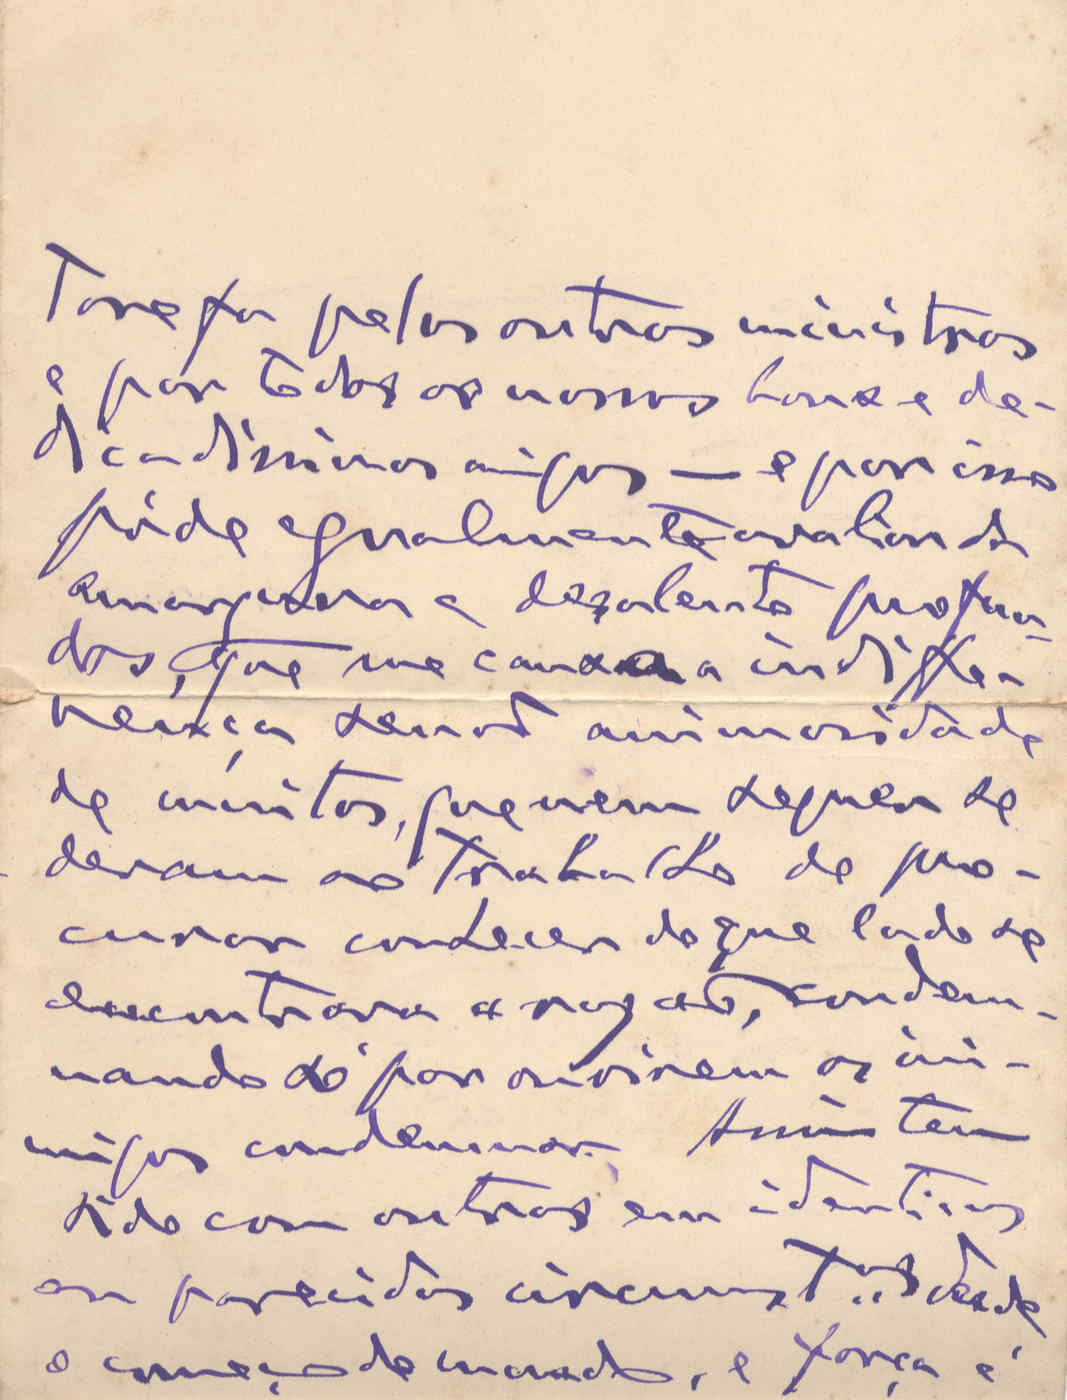 Tarefa pelos outros ministros
e por todos os nossos bons e de-
dicadissimos amigos — e por isso
póde egualmente avaliar da
amargura e desalento profun-
dos, que me causa a indiffe-
rença senão animosidade
de muitos, que nem sequer se
deram ao trabalho de pro-
curar conhecer de que lado se
encontrava a razão, condem-
nando só por ouvirem os ini-
migos condemnar. Assim tem
sido com outros em identicas
ou parecidas circumst.as desde
o começo do mundo, e força é